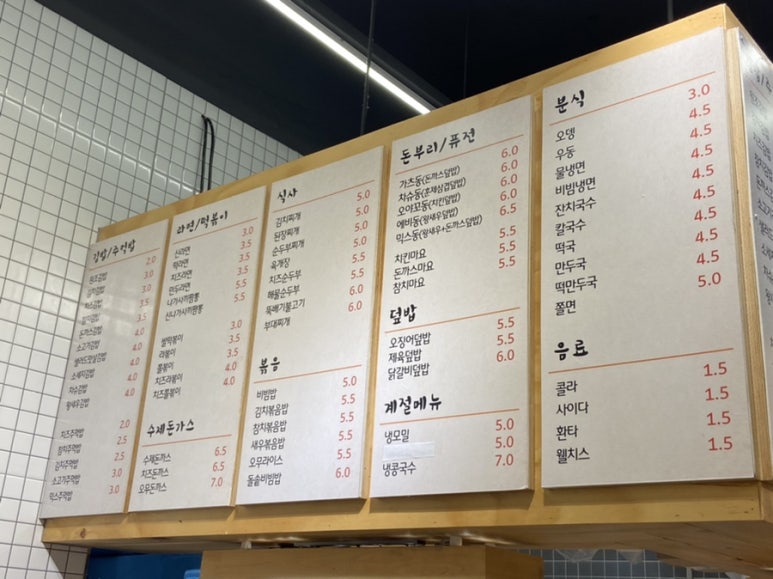 김밥/주먹밥
원조김밥 2.0
김치김밥 3.0
치즈김밥 3.0
참치김밥 3.5
돈까스김밥
소고기김밥
샐러드맛살김밥
소세지김밥
차슈김밥 4.0
왕새우김밥 4.0
치즈주먹밥 2.0
참치주먹밥 2.5
김치주먹밥 2.5
소고기주먹밥 3.0
믹스주먹밥 3.0
라면/떡볶이
진라면 3.0
떡라면 3.5
치즈라면 3.5
만두라면 3.5
나가사끼짬뽕 5.5
신나가사끼짬뽕 5.5
쌀떡볶이 3.0
라볶이 3.5
쫄볶이 4.0
치즈라볶이 4.0
치즈쫄볶이 4.0
수제돈가스
수제돈까스 6.5
치즈돈까스 6.5
오무돈까스 7.0
식사
김치찌개 5.0
된장찌개 5.0
순두부찌개 5.0
육개장 5.0
치즈순두부 5.5
해물순두부 5.5
뚝배기불고기 6.0
부대찌개 6.0
볶음
비빔밥 5.0
김치볶음밥 5.5
참치볶음밥 5.5
새우볶음밥 5.5
오무라이스 5.5
돌솥비빔밥 6.0
돈부리/퓨전
가츠동(돈까스덮밥) 6.0
차슈동(훈제삼겹덮밥) 6.0
오야꼬동(치킨덮밥) 6.0
에비동(왕새우덮밥) 6.0
믹스동(왕새우+돈까스덮밥) 6.5
치킨마요 5.5
돈까스마요 5.5
참치마요 5.5
덮밥
오징어덮밥 5.5
제육덮밥 5.5
닭갈비덮밥 6.0
계절메뉴
냉모밀 5.0
5.0
냉콩국수 7.0
분식
오뎅 3.0
우동 4.5
물냉면 4.5
비빔냉면 4.5
잔치국수 4.5
칼국수 4.5
떡국 4.5
만두국 4.5
떡만두국 4.5
쫄면 5.0
음료
콜라 1.5
사이다 1.5
환타 1.5
웰치스 1.5